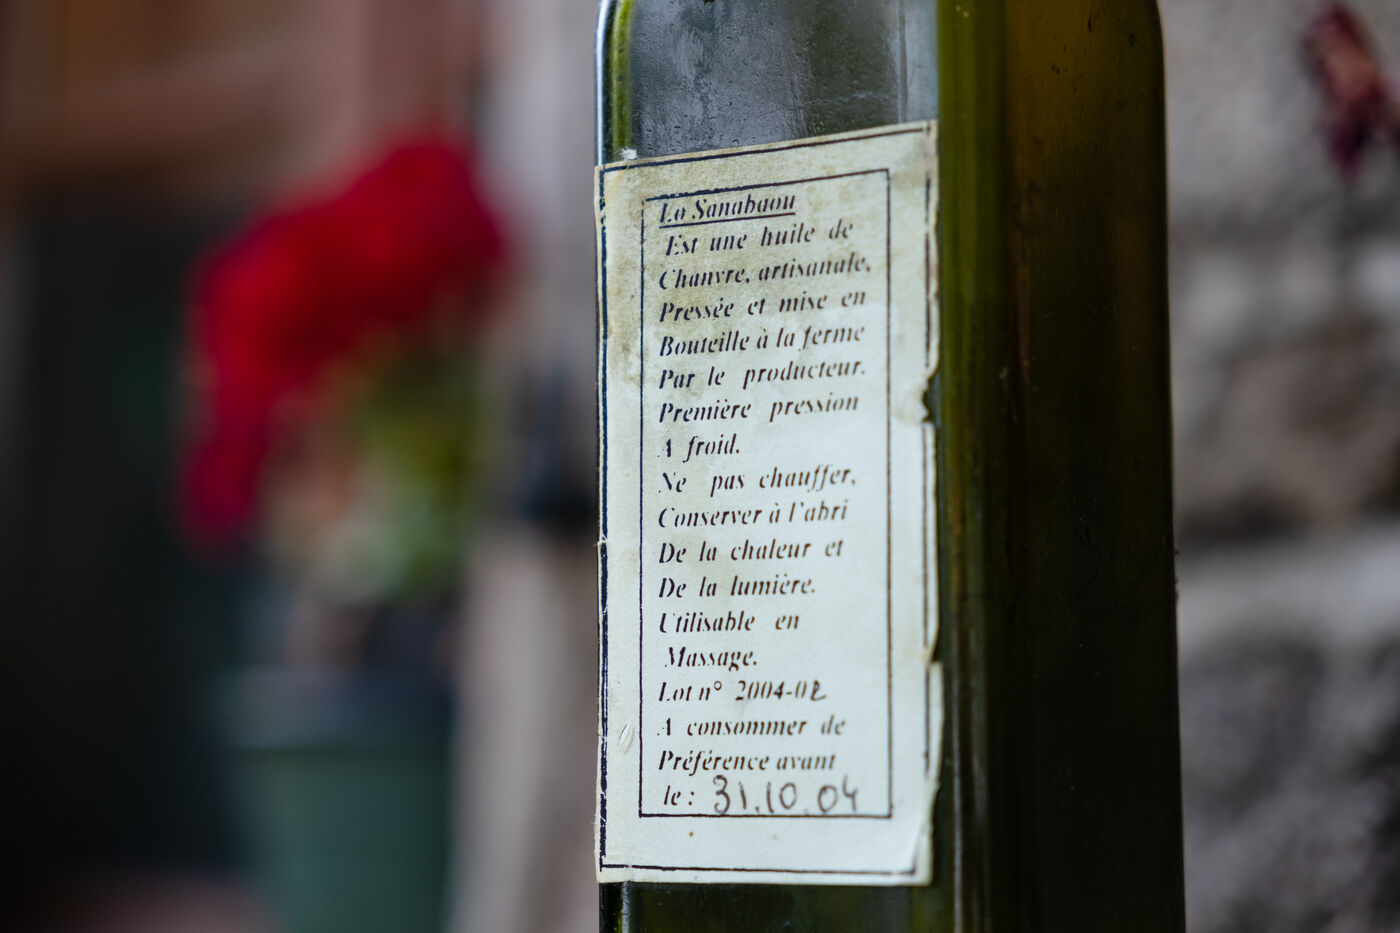 Lo Sanabaou
Est une huile de
Chanvre, artisanale,
Pressée et mise en
Bouteille à la ferme
Par le producteur.
Première pression
A froid.
Ne pas chauffer,
Conserver à l'abri
De la chaleur et
De la lumière.
Utilisable en
Massage.
Lot n° 2004-02
A consommer de
Préférence avant
le : 31.10.04